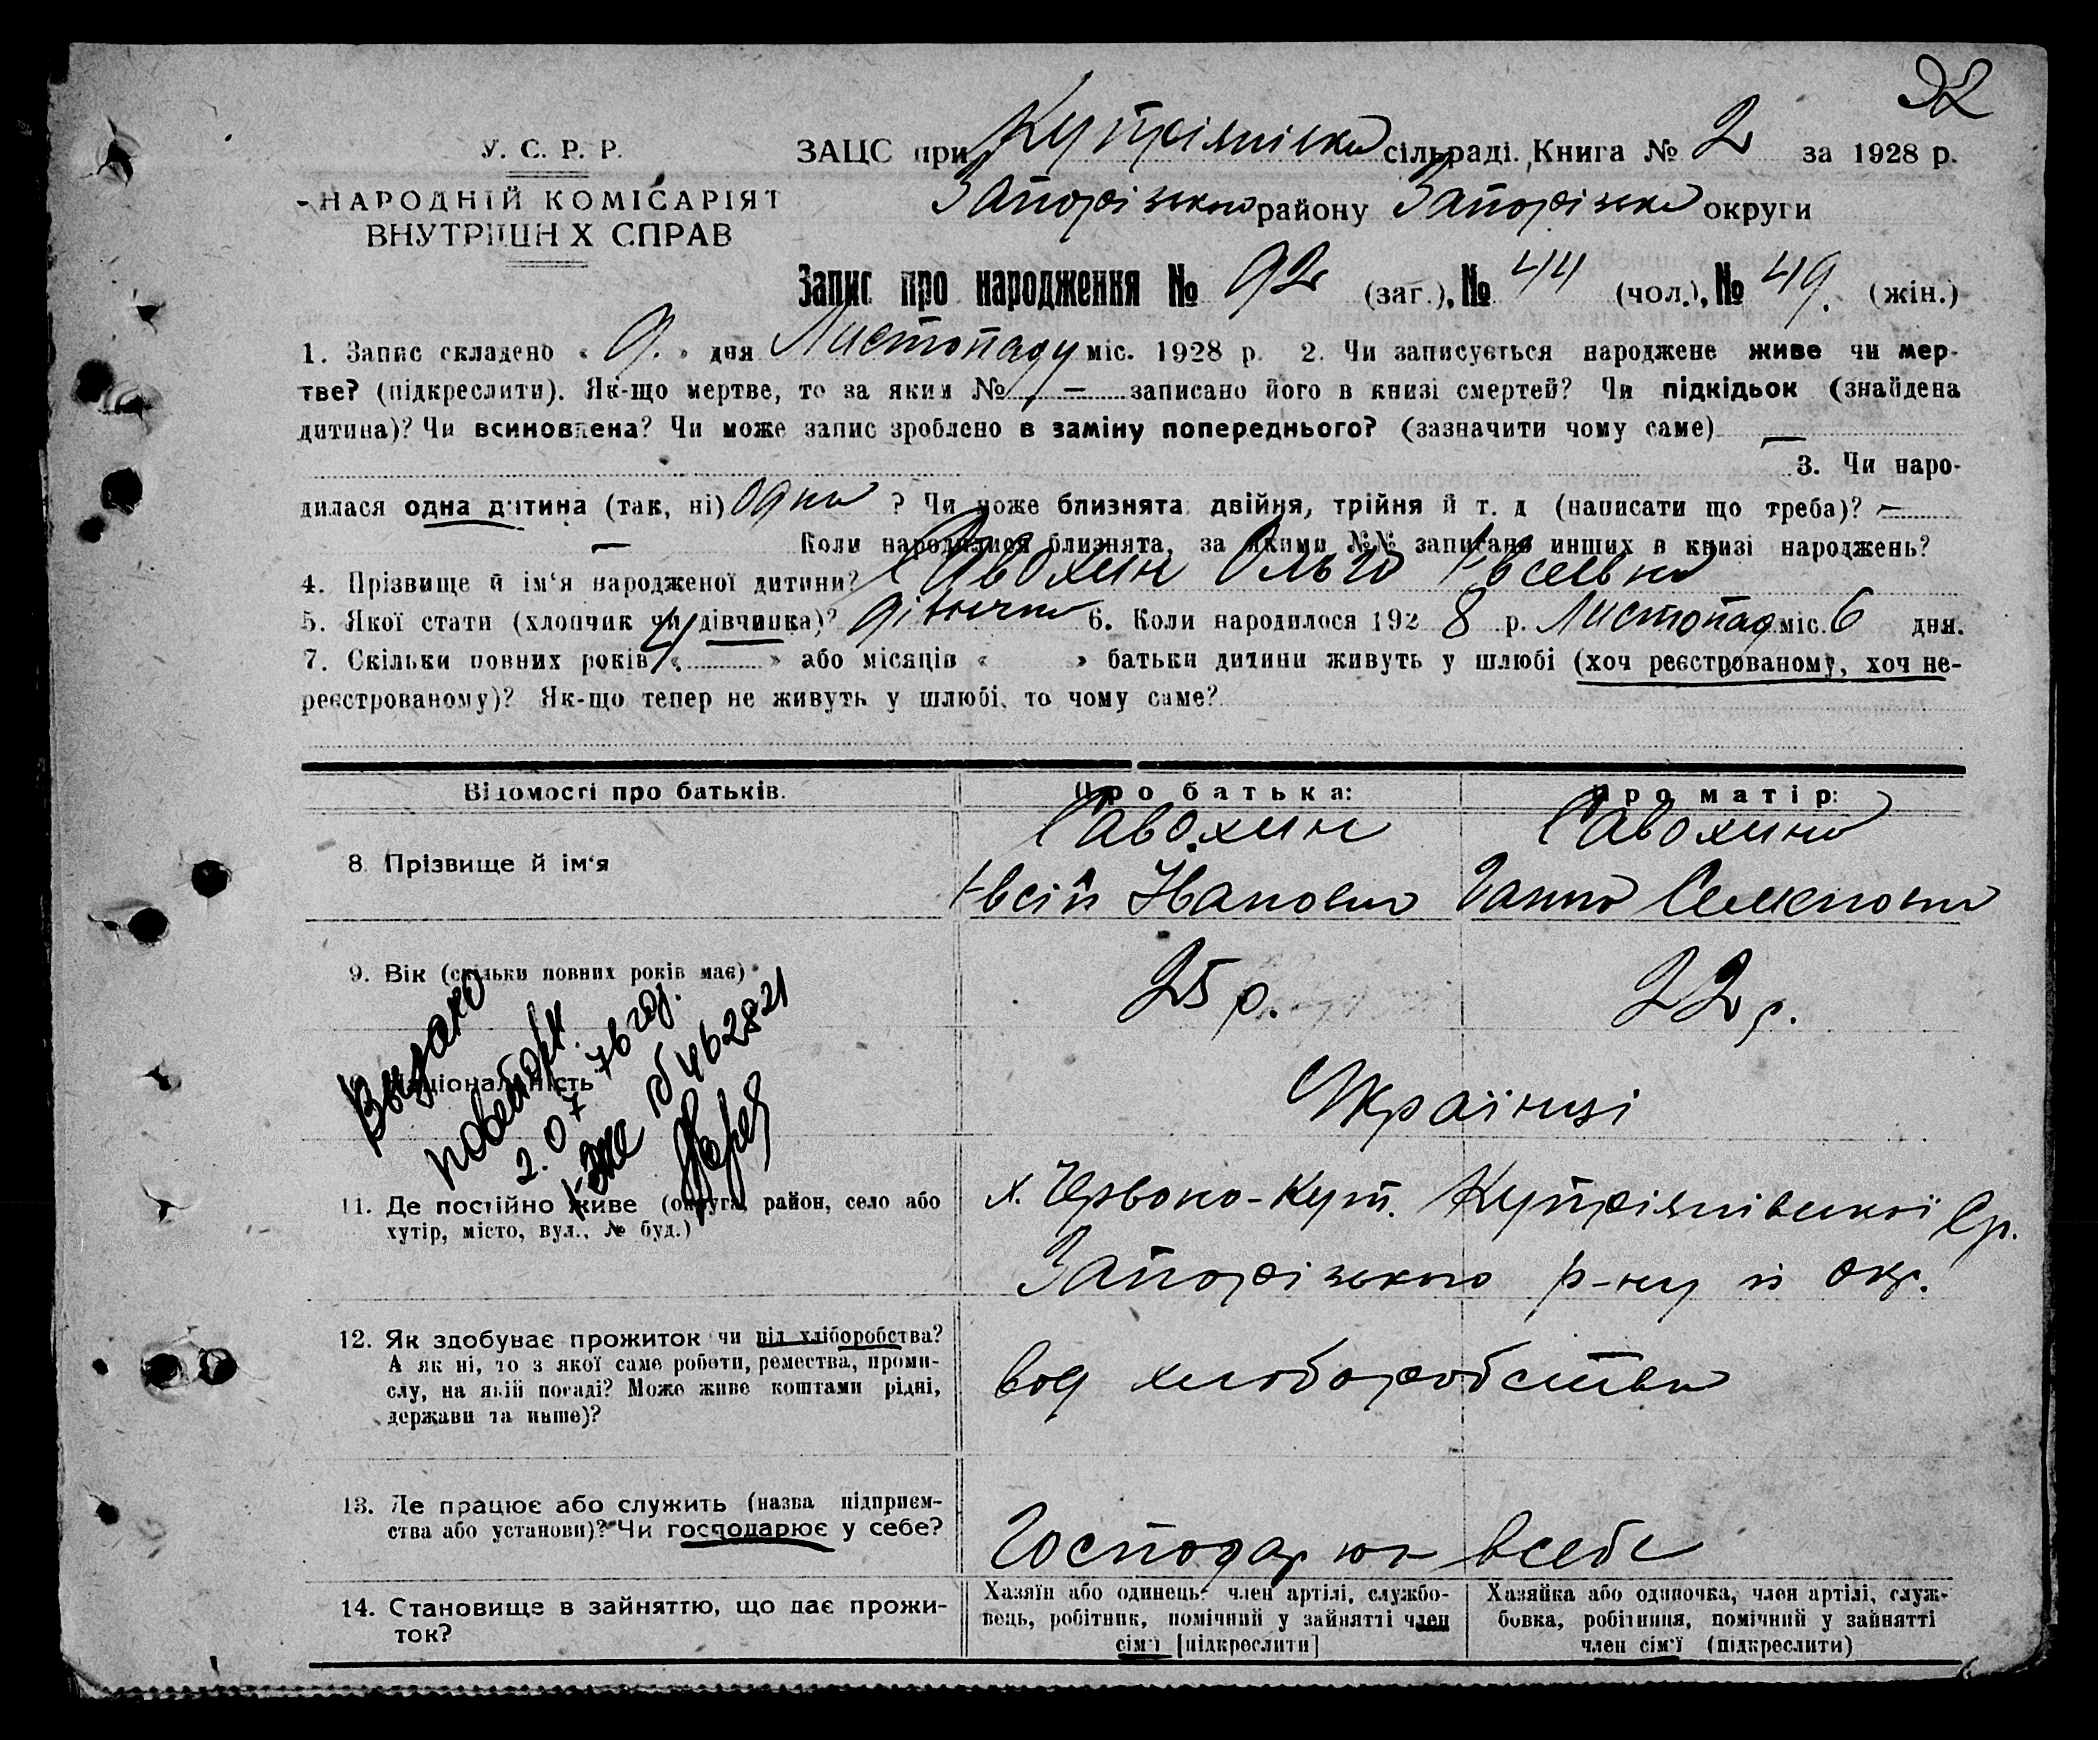 92
У. С. Р. Р.
НАРОДНІЙ КОМІСАРІЯТ
ВНУТРІШНІХ СПРАВ
ЗАЦС при Купріянівск сільраді. Книга № 2 за 1928 р.
Запорізького району Запорізько округи
Запис про народження № 92 (заг.), № 44 (чол.), № 49. (жін.)
1. Запис складено « 9. » дня Листопаду міс. 1928 р. 2. Чи записується народжене живе чи мер-
тве? (підкреслити). Як-що мертве, то за яким № — записано його в книзі смертей? Чи підкідьок (знайдена
дитина)? Чи всиновлена? Чи може запис зроблено в заміну попереднього? (зазначити чому саме) —
3. Чи наро-
дилася одна дитина (так, ні) одна ? Чи може близнята двійня, трійня й т. д (написати що треба)? —
— Коли народилися близнята, за якими №№ записано инших в книзі народжень?
4. Прізвище й ім‘я народженої дитини? Савохин Ольга Євсеевна
5. Якої стати (хлопчик чи дівчинка)? дівчична 6. Коли народилося 192 8 р. Листопад міс. 6 дня.
7. Скільки повних років « 4 » або місяців « » батьки дитини живуть у шлюбі (хоч реєстрованому, хоч не-
реєстрованому)? Як-що тепер не живуть у шлюбі, то чому саме?
Відомості про батьків. Про батька: Про матір:
8. Прізвище й ім‘я
Савохин Савохина
Євсій Іванович Ганна Семенович
9. Вік (скільки повних років має) 25 р. 22 р.
Видано
повторн.
2.07 76 год.
Національність Українці
11. Де постійно живе (округа, район, село або
хутір, місто, вул., № буд.)
х. Червоно-Кут. Купріянівської Ср.
Запорізького р-ну й окр.
12. Як здобуває прожиток чи від хліборобства?
А як ні, то з якої саме роботи, ремества, проми-
слу, на якій посаді? Може живе коштами рідні,
держави та инше)?
вод хлоборобства
13. Де працює або служить (назва підприєм-
ства або установи)? Чи господарює у себе?
Господарює всебе
14. Становище в зайняттю, що дає прожи-
ток?
Хазяїн або одинець член артілі, службо-
вець, робітник, помічний у зайнятті член
сім‘ї [підкреслити]
Хазяйка або одиночка, член артілі, служ-
бовка, робітниця, помічний у зайнятті
член сім‘ї (підкреслити)